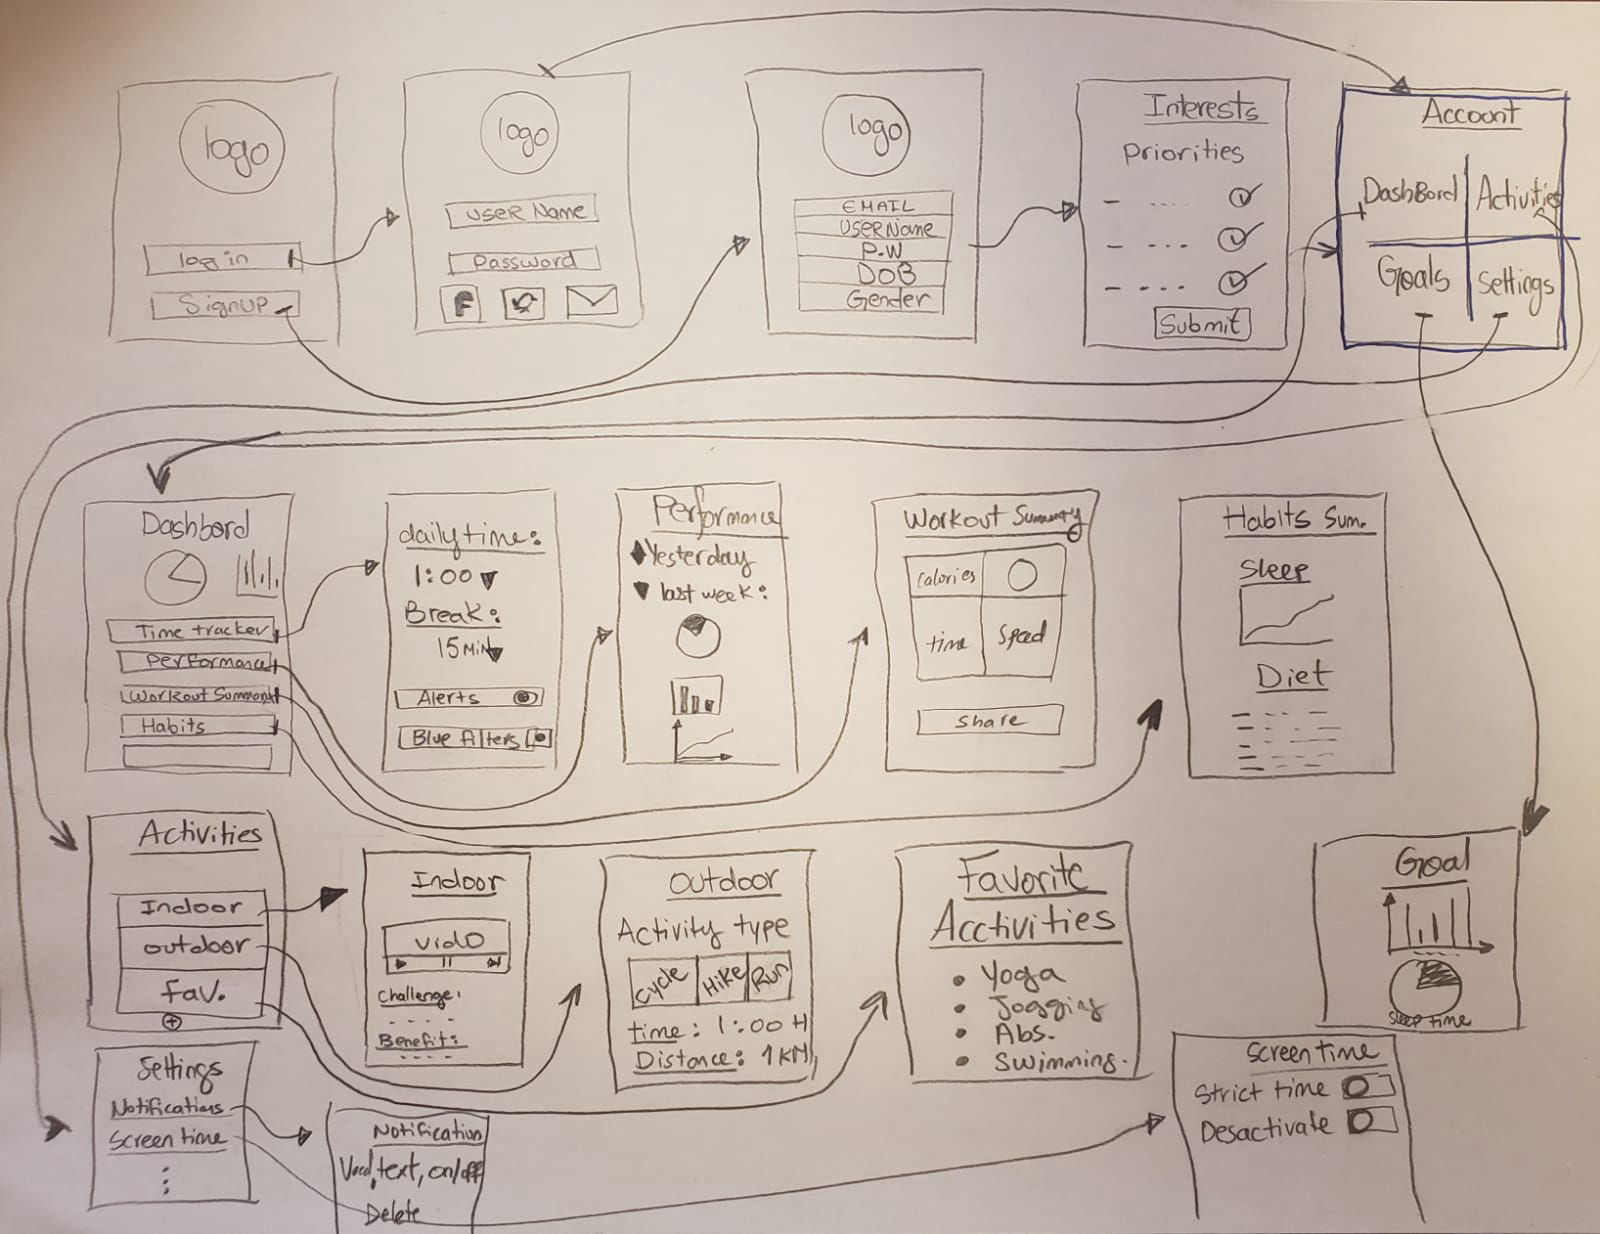 logo
log in
Signup
logo
User Name
Password
F
logo
EMAIL
USERName
P.W
DOB
Gender
Interests
Priorities
Submit
Account
DashBord
Activities
Goals
Settings
Dashbord
Time tracker
Performance
Habits
daily time:
1:00
Break:
15 Min
Alerts
Blue filters
Performance
Yesterday
last week:
Workout Summary
Calories
time
Speed
Share
Habits Sum.
Sleep
Diet
Activities
Indoor
outdoor
fav.
Indoor
vido
Challenge:
Benefit:
Outdoor
Activity type
Cycle
Hike
Run
time: 1:00 H
Distance: 1 KM
Favorite
Acctivities
Yoga
Jogging
Abs.
Swimming.
Goal
Sleep time
Settings
Notifications
Screen time
Notification
text, on/off
Delete
Screen time
Strict time
Desactivate